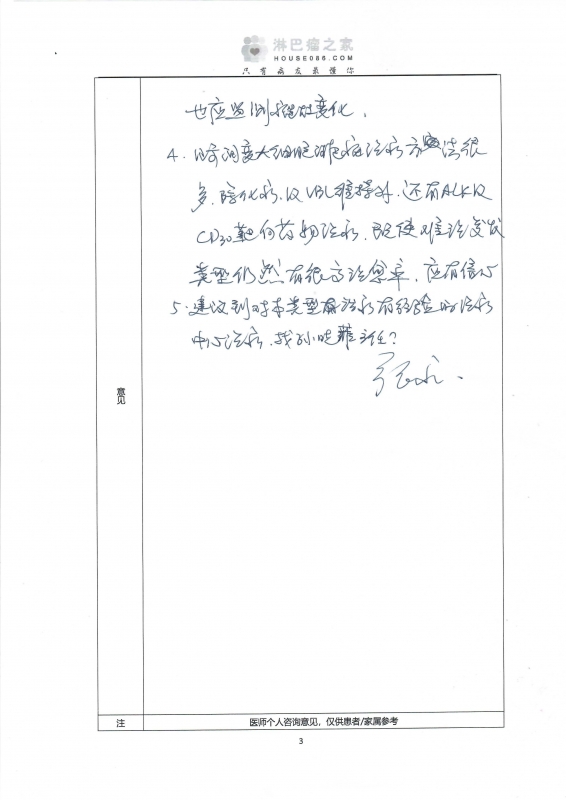 淋巴瘤之家
HOUSE086.COM
只有病友最懂你
也应监测 变化.
4. 间变大细胞淋巴瘤治疗方法很
多,除化疗,及VBL维持外,还有ALK及
CD30靶向药物治疗,既使难治复发
类型仍然有很高治愈率,应有信心
5. 建议到对本类型 治疗有经验的治疗
中心治疗,找孙晓 主任?
意见
注
医师个人咨询意见,仅供患者/家属参考
3